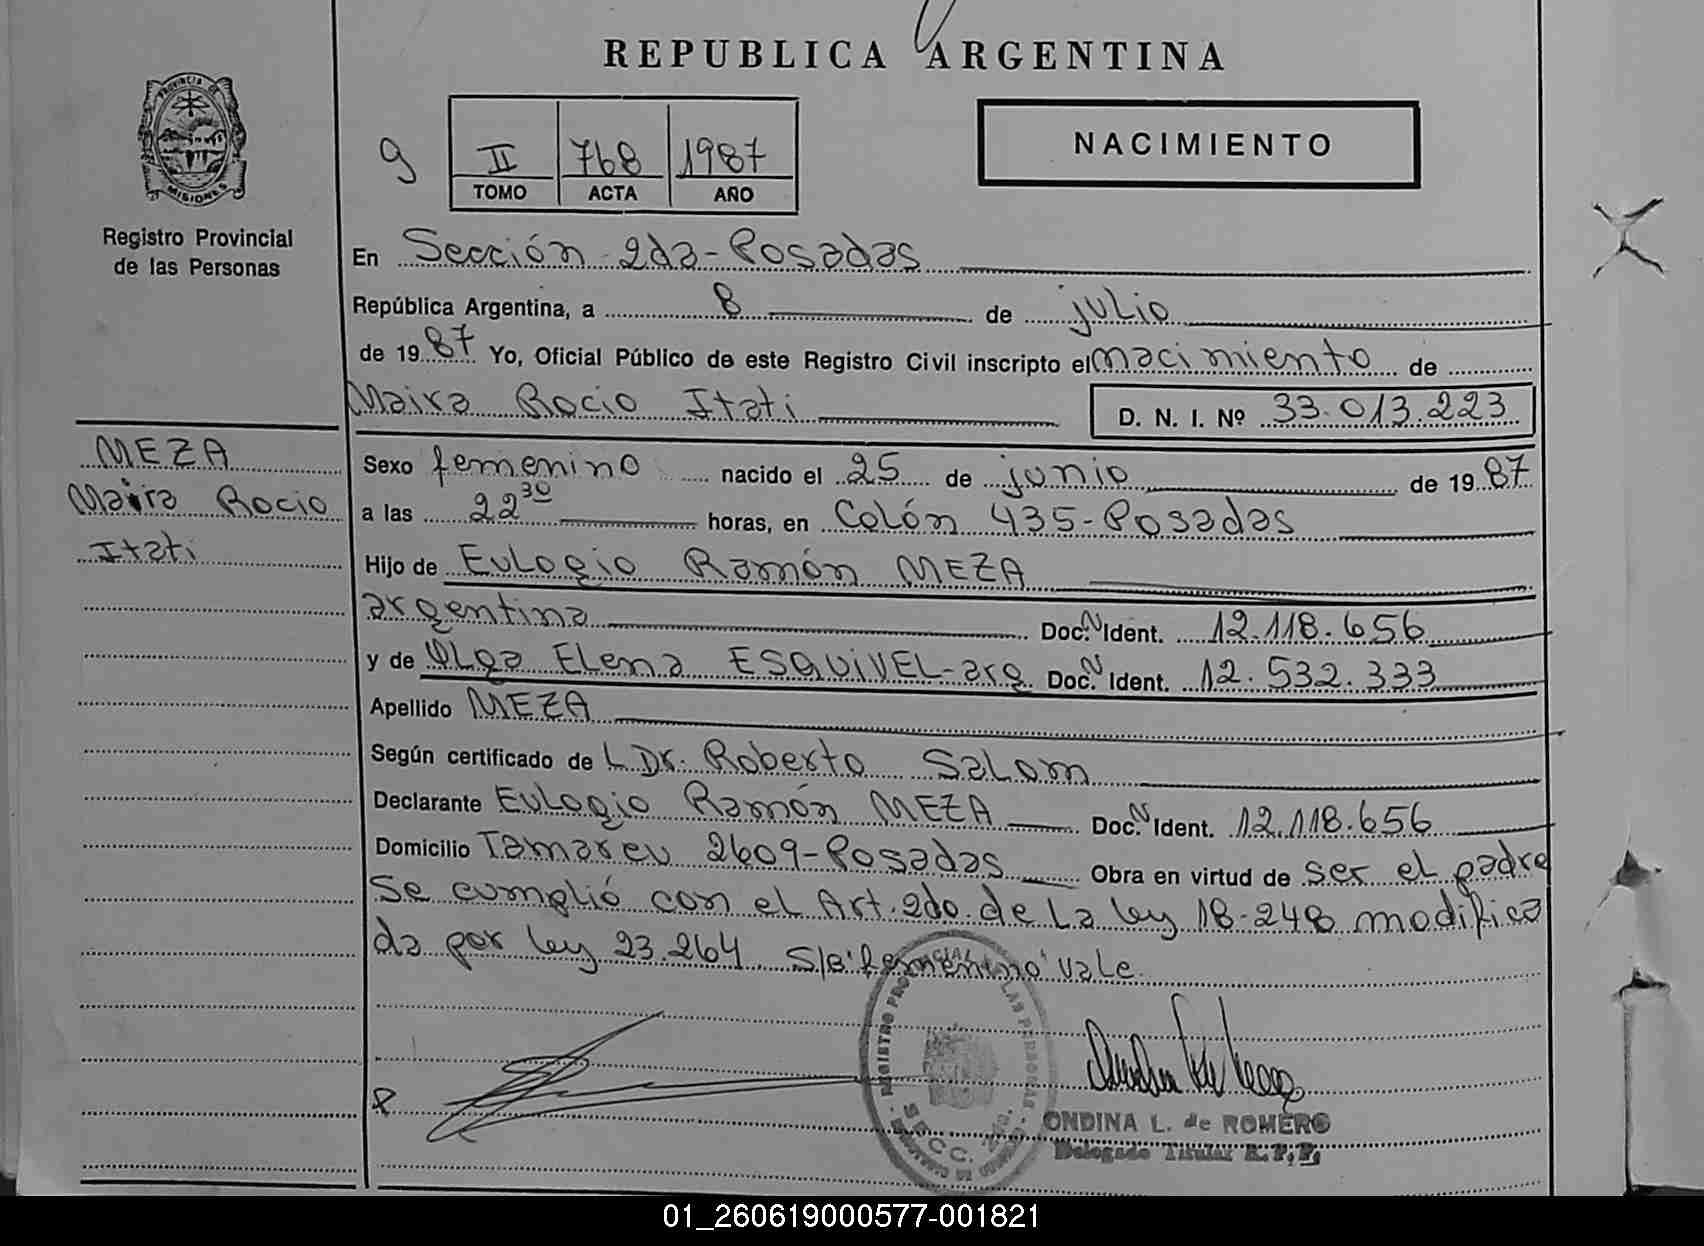 REPUBLICA ARGENTINA
PROVINCIA DE
MISIONES
Registro Provincial
de las Personas
9
II 768 1987
TOMO ACTA AÑO
NACIMIENTO
En Sección 2da-Posadas
República Argentina, a 8 de julio
de 1987 Yo, Oficial Público de este Registro Civil inscripto el nacimiento de
Maira Rocio Itati D. N. I. Nº 33.013.223
MEZA
Maira Rocio
Itati
Sexo femenino nacido el 25 de junio de 1987
a las 22 30 horas, en Colón 435-Posadas
Hijo de Eulogio Ramón MEZA
argentina Doc. N Ident. 12.118.656
y de Olga Elena ESQUIVEL-arg Doc. N Ident. 12.532.333
Apellido MEZA
Según certificado de L Dr. Roberto Salom
Declarante Eulogio Ramón MEZA Doc. N Ident. 12.118.656
Domicilio Tamareu 2609-Posadas Obra en virtud de ser el padre
Se cumplió con el Art. 2do. de La ley 18-248 modifica
da por ley 23.264. S/B'femenino'vale.
REGISTRO PROVINCIAL LAS PERSONAS
SECC. 2da.
ONDINA L. de ROMERO
Delegado Titular R. P. P.
01_260619000577-001821